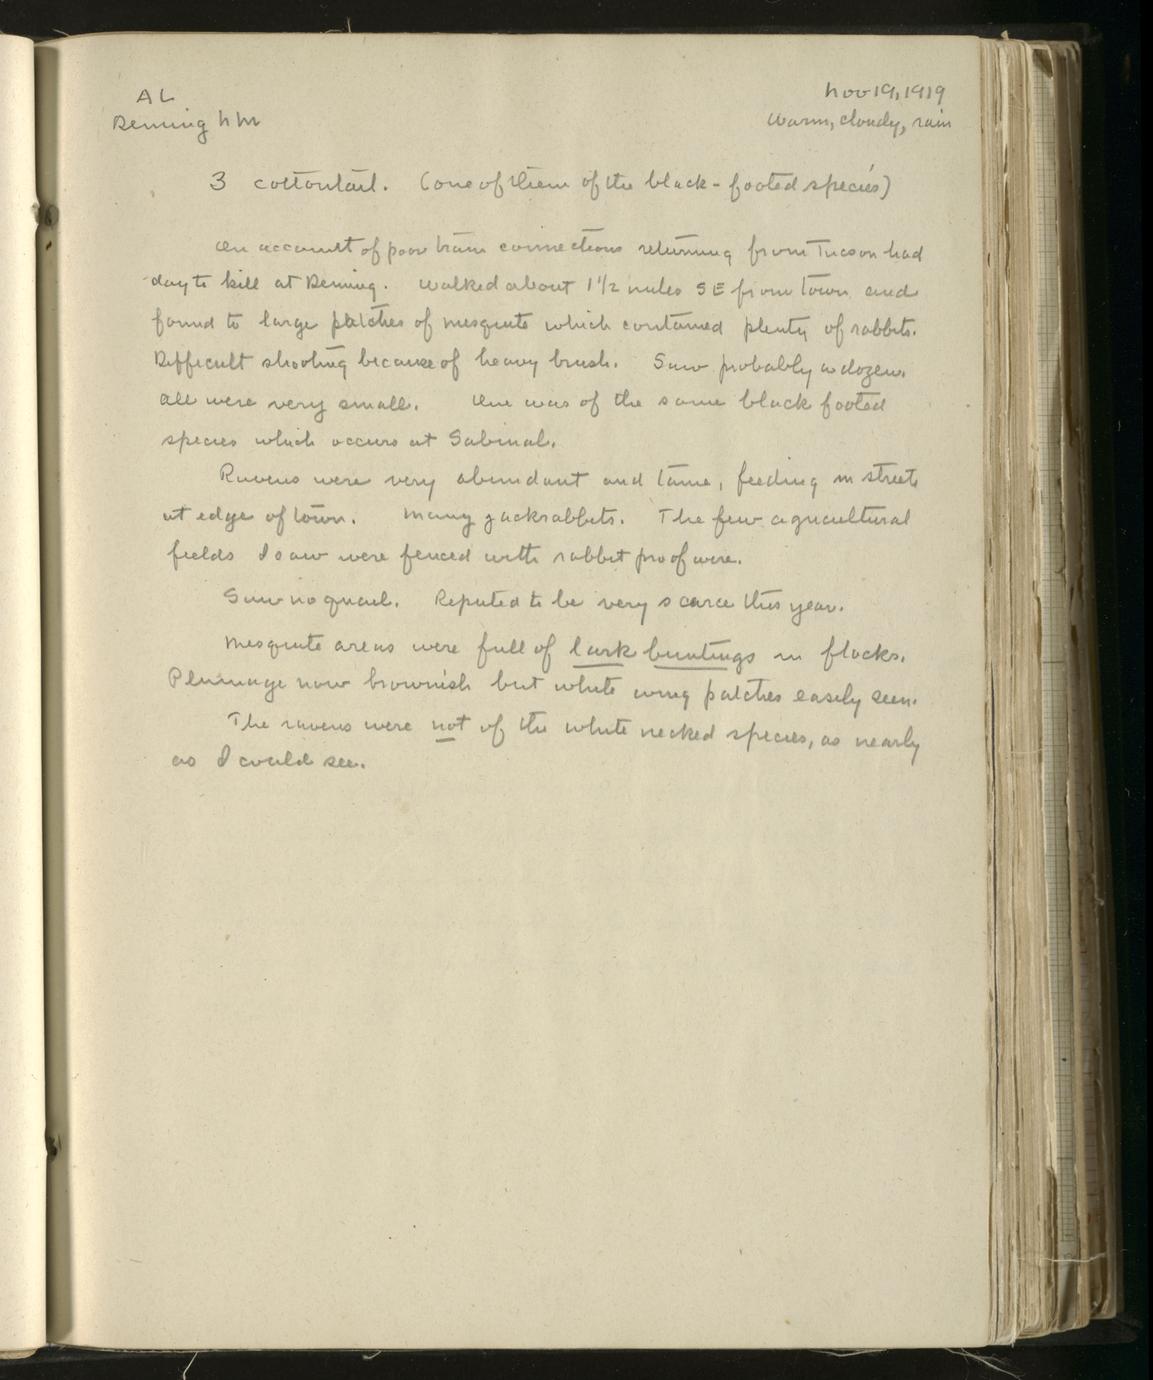 AL
Deming NM
Nov 19, 1919
Warm, cloudy, rain
3 cottontail. (one of them of the black-footed species)
On account of poor train connections returning from Tucson had
day to kill at Deming. Walked about 1 1/2 miles SE from town and
found to large patches of mesquite which contained plenty of rabbits.
Difficult shooting because of heavy brush. Saw probably a dozen.
All were very small. One was of the same black footed
species which occurs at Sabinal.
Ravens were very abundant and tame, feeding in streets
at edge of town. Many jackrabbits. The few agricultural
fields I saw were fenced with rabbit proof wire.
Saw no quail. Reputed to be very scarce this year.
Mesquite areas were full of lark buntings in flocks.
Plumage now brownish but white wing patches easily seen.
The ravens were not of the white necked species, as nearly
as I could see.